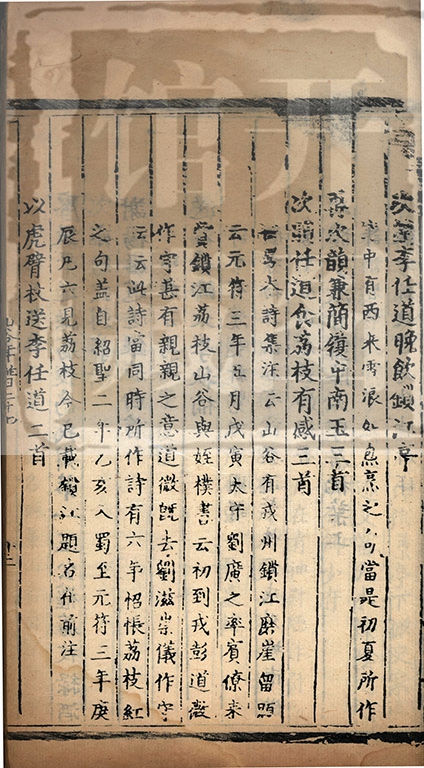 次韻李任道晚飲鎖江亭
中有西來雪浪如烹之句當是初夏所作
再次韻兼簡履中南玉三首
次韻任道食荔枝有感三首
詩集注云山谷有戎州鎖江磨崖留題
云元符三年五月戊寅太守劉廣之率賓僚來
賞鎖江荔枝山谷與姪樸書云初到戎彭道微
作守甚有親親之意道微旣去劉滋崇儀作守
云云此詩當同時所作詩有六年怊悵荔枝紅
之句蓋自紹聖二年乙亥入蜀至元符三年庚
辰凡六見荔枝今已載鎖江題名作前注
以虎臂杖送李任道二首